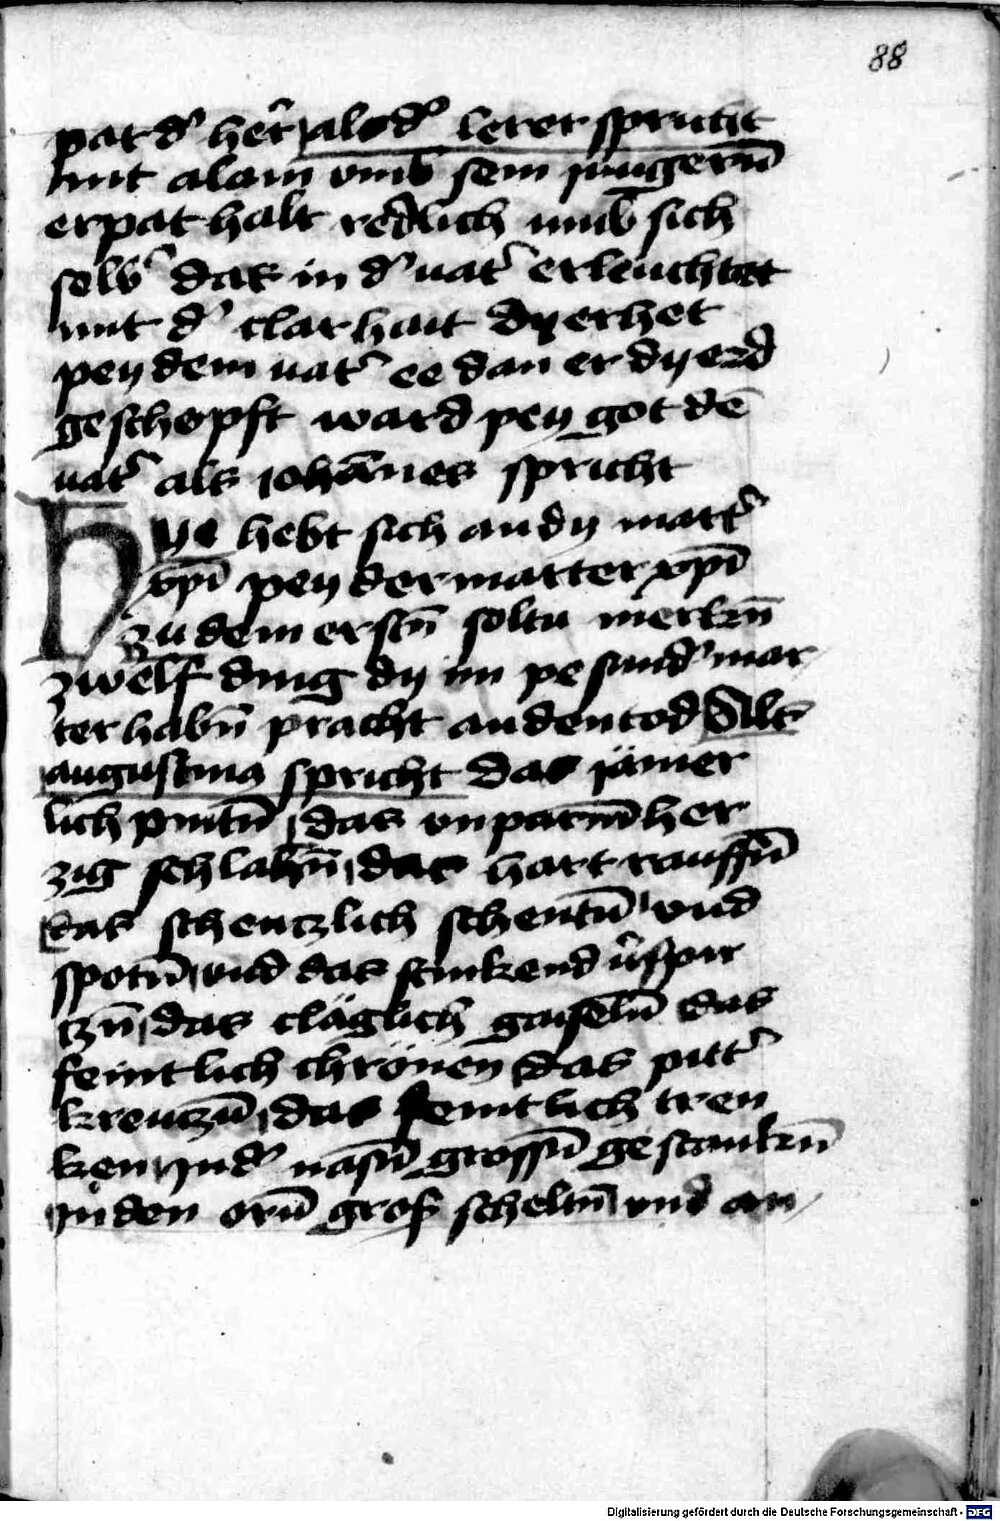 88
pat d᾽ her̄ als d᾽ lerer spricht
nit alain vmb sein jungerñ
er pat halt redlich vmb sich
selb᾽ das in d᾽ uat᾽ erleuchtet
mit d᾽ clarhait dy er het
pey dem uat᾽ ee dan er dy erd
geschopft ward pey got dē
uat᾽ als johānes spricht
Hye hebt sich an dy mart᾽
xp̄i pey der marter xp̄i
zu dem erstn̄ soltu merkn̄
zwelf ding dy im pesund᾽ mar
ter habn̄ pracht an den tod Als
augustinus spricht das jämer
lich pintn̄ das vnparmher
zig schlahn̄ das hart rauffn̄
das scheuczlich schentn̄ vnd
spotn̄ vnd das stinkend v᾽spir
czn̄ das cläglich gaiseln̄ das
feintlich chrönen das pitt᾽
kreuczn̄ das feintlich tren
ken in d᾽ nasn̄ grossn̄ gestankn̄
in den orn̄ gros scheltn̄ vnd an
Digitalisierung gefördert durch die Deutsche Forschungsgemeinschaft - DFG